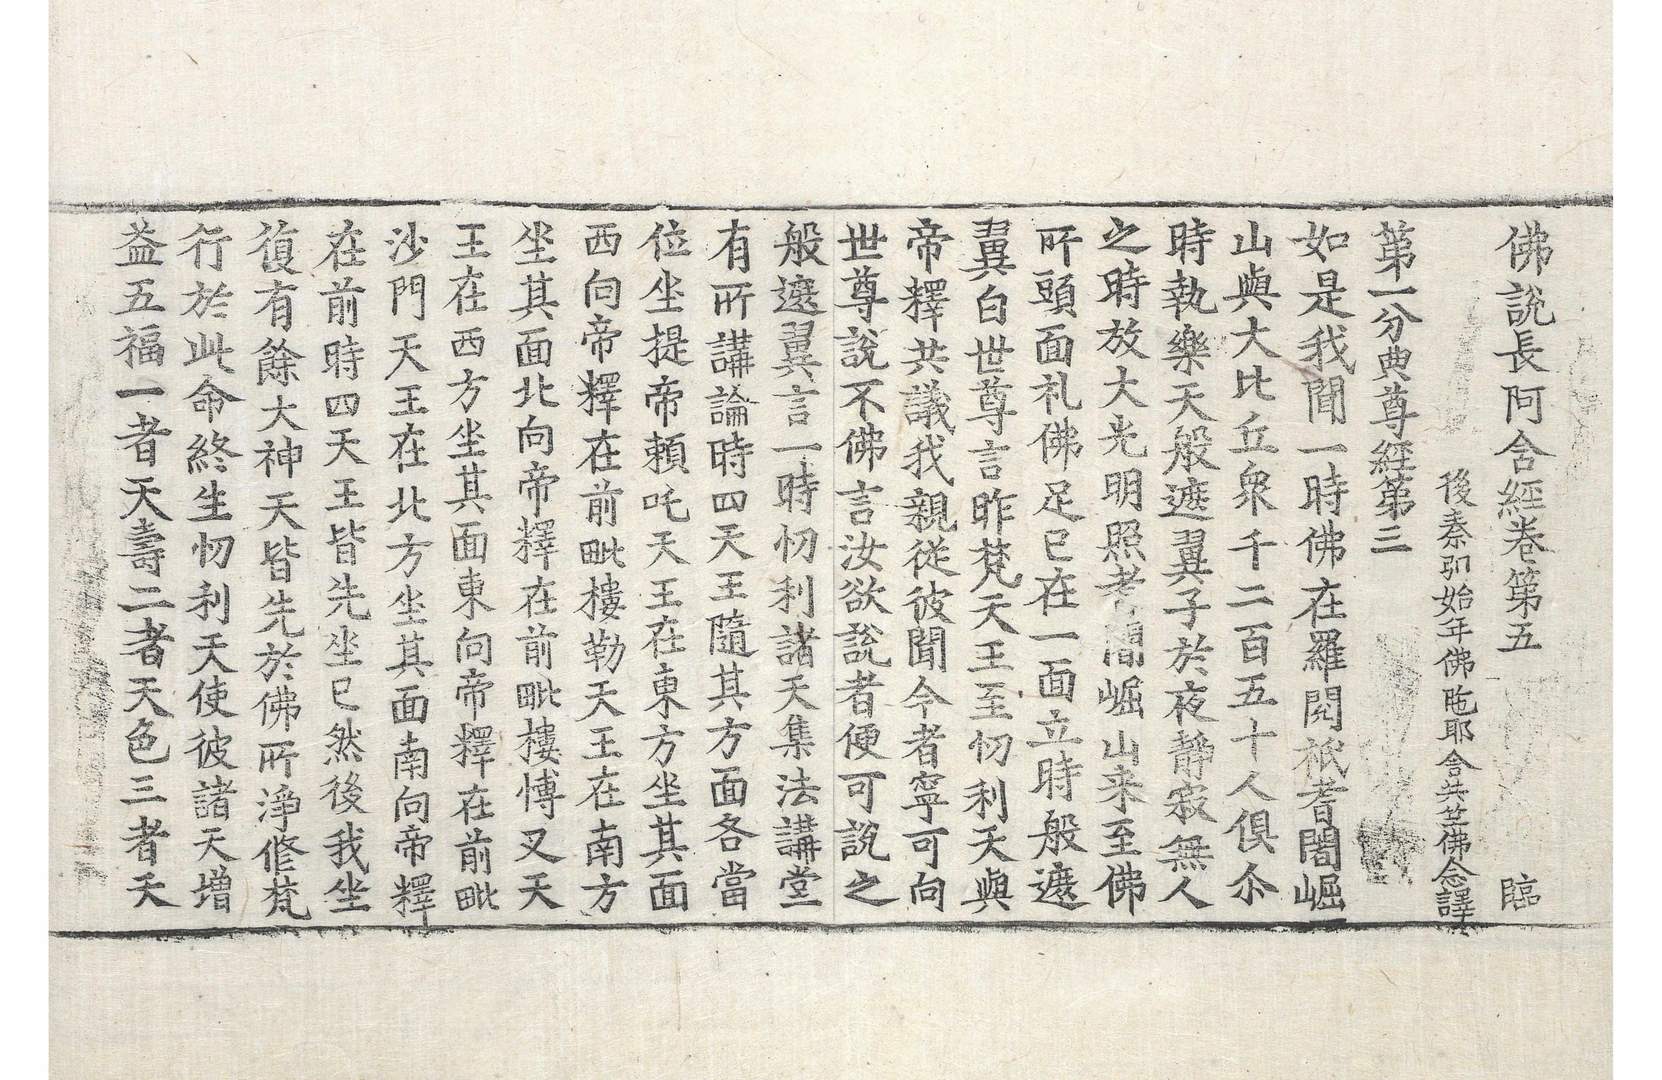 佛說長阿含經卷第五　臨
後秦弘始年佛陁耶舍共竺佛念譯
第一分典尊經第三
如是我聞一時佛在羅閱祇耆闍崛
山與大比丘衆千二百五十人俱尒
時執樂天般遮翼子於夜靜寂無人
之時放大光明照耆闍崛山来至佛
所頭面礼佛足已在一面立時般遮
翼白世尊言昨梵天王至忉利天與
帝釋共議我親從彼聞今者寧可向
世尊說不佛言汝欲說者便可說之
般遮翼言一時忉利諸天集法講堂
有所講論時四天王隨其方面各當
位坐提帝賴吒天王在東方坐其面
西向帝釋在前毗樓勒天王在南方
坐其面北向帝釋在前毗樓博叉天
王在西方坐其面東向帝釋在前毗
沙門天王在北方坐其面南向帝釋
在前時四天王皆先坐已然後我坐
復有餘大神天皆先於佛所淨修梵
行於此命終生忉利天使彼諸天增
益五福一者天壽二者天色三者天